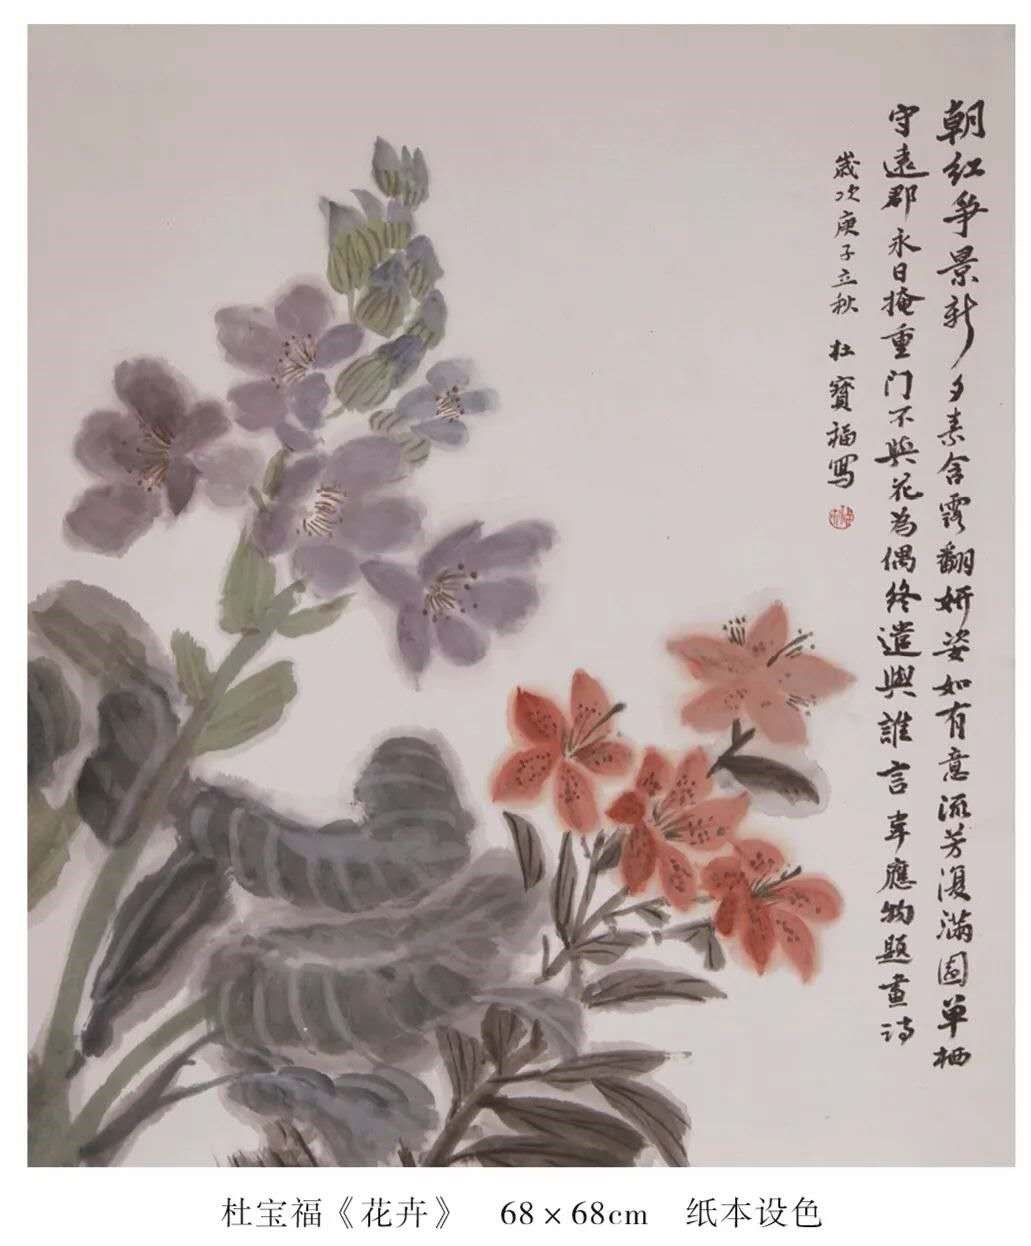 朝红争景新夕素含露翻妍姿如有意流芳復满園单栖
守遠郡永日掩重门不與花為偶终遣與誰言韋應物题畫诗
歲次庚子立秋 杜寶福寫
杜宝福《花卉》 68×68cm 纸本设色